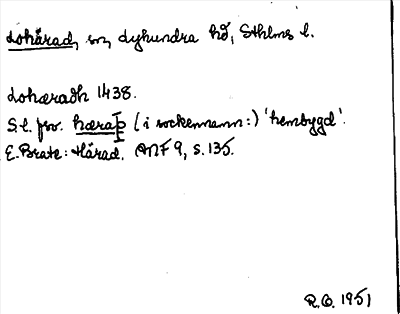 Lohärad, sn, Lyhundra hd, Sthlms l.
Lohæradh 1438.
S.l. fsv. hæraþ (i sockennamn:) 'hembygd'.
E. Brate: Härad. ANF 9, s. 135.
R.O. 1951